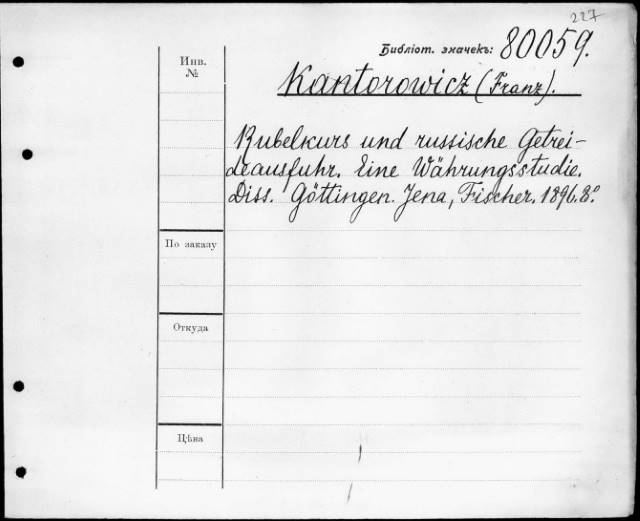 227
Библіот. значекъ: 80059.
Инв.
№
Kantorowicz (Franz).
Rubelkurs und russische Getrei-
deausfuhr. Eine Währungsstudie.
Diss. Göttingen. Jena, Fischer. 1896. 8.º
По заказу
Откуда
Цѣна